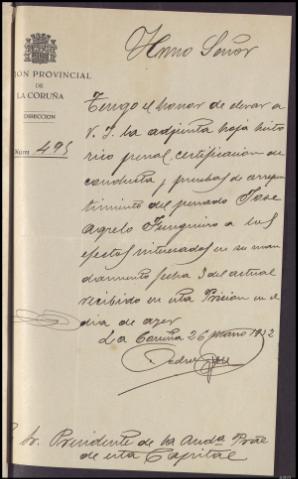 Ilmo Señor
IÓN PROVINCIAL
DE
LA CORUÑA
DIRECCION
Núm 495
Tengo el honor de elevar a
V. I. la adjunta hoja histó
rico penal, certificacion de
conducta y pruebas de arrepen
timiento del penado Jose
Agrelo a los
efectos interesados en su man
damiento fecha 3 del actual
recibido en esta Prision en el
dia de ayer
La Coruña 26 1932
Sr. Presidente de la Auda Pral
de esta Capital